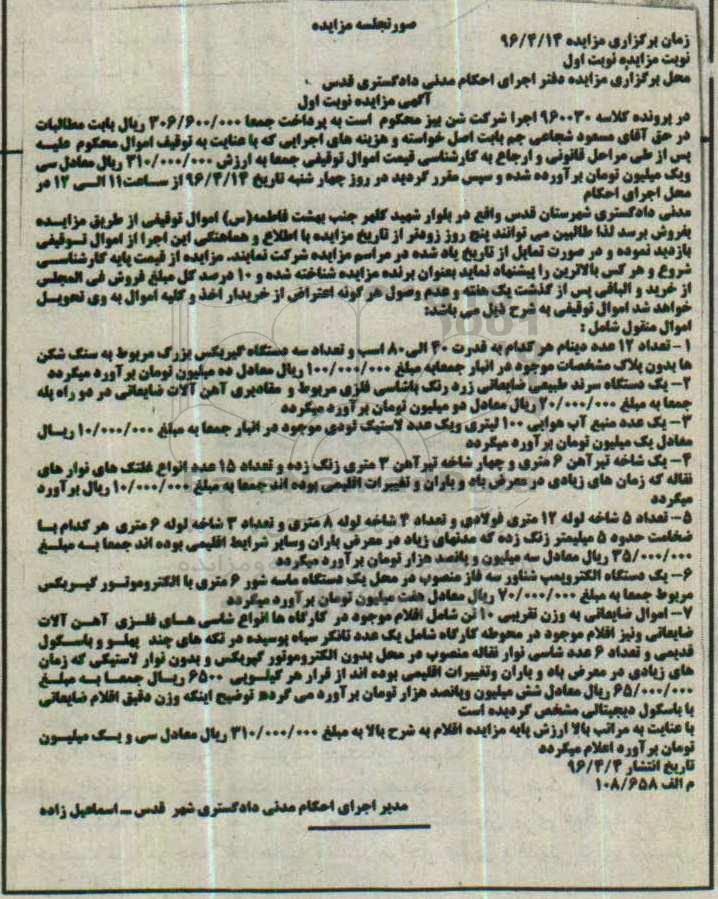 صورتجلسه مزایده
زمان برگزاری مزایده ۹۶/۴/۱۴
نوبت مزایده نوبت اول
محل برگزاری مزایده دفتر اجرای احکام مدنی دادگستری قدس
آگهی مزایده نوبت اول
در پرونده کلاسه ۹۶۰۰۳۰ اجرا شرکت شن بیز محکوم است به پرداخت جمعا ۳۰۶/۶۰۰/۰۰۰ ریال بابت مطالبات
در حق آقای مسعود شجاعی جم بابت اصل خواسته و هزینه های اجرایی که با عنایت به توقیف اموال محکوم علیه
پس از طی مراحل قانونی و ارجاع به کارشناسی قیمت اموال توقیفی جمعا به ارزش ۳۱۰/۰۰۰/۰۰۰ ریال معادل سی
ویک میلیون تومان برآورده شده و سپس مقرر گردید در روز چهار شنبه تاریخ ۹۶/۴/۱۴ از ساعت۱۱ الی ۱۲ در
محل اجرای احکام
مدنی دادگستری شهرستان قدس واقع در بلوار شهید کلهر جنب بهشت فاطمه(س) اموال توقیفی از طریق مزایده
بفروش برسد لذا طالبین می توانند پنج روز زودتر از تاریخ مزایده با اطلاع و هماهنگی این اجرا از اموال توقیفی
بازدید نموده و در صورت تمایل از تاریخ یاد شده در مراسم مزایده شرکت نمایند. مزایده از قیمت پایه کارشناسی
شروع و هر کس بالاترین را پیشنهاد نماید بعنوان برنده مزایده شناخته شده و ۱۰ درصد کل مبلغ فروش فی المجلس
از خرید و الباقی پس از گذشت یک هفته و عدم وصول هر گونه اعتراض از خریدار اخذ و کلیه اموال به وی تحویل
خواهد شد اموال توقیفی به شرح ذیل می باشد:
اموال منقول شامل :
۱- تعداد ۱۲ عدد دینام هر کدام به قدرت ۴۰ الی۸۰ اسب و تعداد سه دستگاه گیربکس بزرگ مربوط به سنگ شکن
ها بدون پلاک مشخصات موجود در انبار جمعابه مبلغ ۱۰۰/۰۰۰/۰۰۰ ریال معادل ده میلیون تومان برآورد میگردد
۲- یک دستگاه سرند طبیعی ضایعاتی زرد رنگ باشاسی فلزی مربوط و مقادیری آهن آلات ضایعاتی در دو راه پله
جمعا به مبلغ ۲۰/۰۰۰/۰۰۰ ریال معادل دو میلیون تومان برآورد میگردد
۳- یک عدد منبع آب هوایی ۱۰۰ لیتری ویک عدد لاستیک لودی موجود در انبار جمعا به مبلغ ۱۰/۰۰۰/۰۰۰ ریال
معادل یک میلیون تومان برآورد میگردد
۴- یک شاخه تیرآهن ۶ متری و چهار شاخه تیرآهن ۳ متری زنگ زده و تعداد ۱۵ عدد انواع غلتک های نوار های
نقاله که زمان های زیادی در معرض باد و باران و تغییرات اقلیمی بوده اند جمعا به مبلغ ۱۰/۰۰۰/۰۰۰ ریال برآورد
میگردد
۵- تعداد ۵ شاخه لوله ۱۲ متری فولادی و تعداد ۴ شاخه لوله ۸ متری و تعداد ۳ شاخه لوله ۶ متری هر کدام با
ضخامت حدود ۵ میلیمتر زنگ زده که مدتهای زیاد در معرض باران وسایر شرایط اقلیمی بوده اند جمعا به مبلغ
۳۵/۰۰۰/۰۰۰ ریال معادل سه میلیون و پانصد هزار تومان برآورد میگردد
۶- یک دستگاه الکتروپمپ شناور سه فاز منصوب در محل یک دستگاه ماسه شور ۶ متری با الکتروموتور گیربکس
مربوط جمعا به مبلغ ۷۰/۰۰۰/۰۰۰ ریال معادل هفت میلیون تومان برآورد میگردد
۷- اموال ضایعاتی به وزن تقریبی ۱۰ تن شامل اقلام موجود در کارگاه ها انواع شاسی های فلزی آهن آلات
ضایعاتی ونیز اقلام موجود در محوطه کارگاه شامل یک عدد تانکر سیاه پوسیده در تکه های چند پهلو و باسکول
قدیمی و تعداد ۶ عدد شاسی نوار نقاله منصوب در محل بدون الکتروموتور گیربکس و بدون نوار لاستیکی که زمان
های زیادی در معرض باد و باران وتغییرات اقلیمی بوده اند از قرار هر کیلویی ۶۵۰۰ ریال جمعا به مبلغ
۶۵/۰۰۰/۰۰۰ ریال معادل شش میلیون وپانصد هزار تومان برآورد می گردد توضیح اینکه وزن دقیق اقلام ضایعاتی
با باسکول دیجیتالی مشخص گردیده است
با عنایت به مراتب بالا ارزش پایه مزایده اقلام به شرح بالا به مبلغ ۳۱۰/۰۰۰/۰۰۰ ریال معادل سی و یک میلیون
تومان برآورد اعلام میگردد
تاریخ انتشار ۹۶/۴/۴
م الف ۱۰۸/۶۵۸
مدیر اجرای احکام مدنی دادگستری شهر قدس - اسماعیل زاده